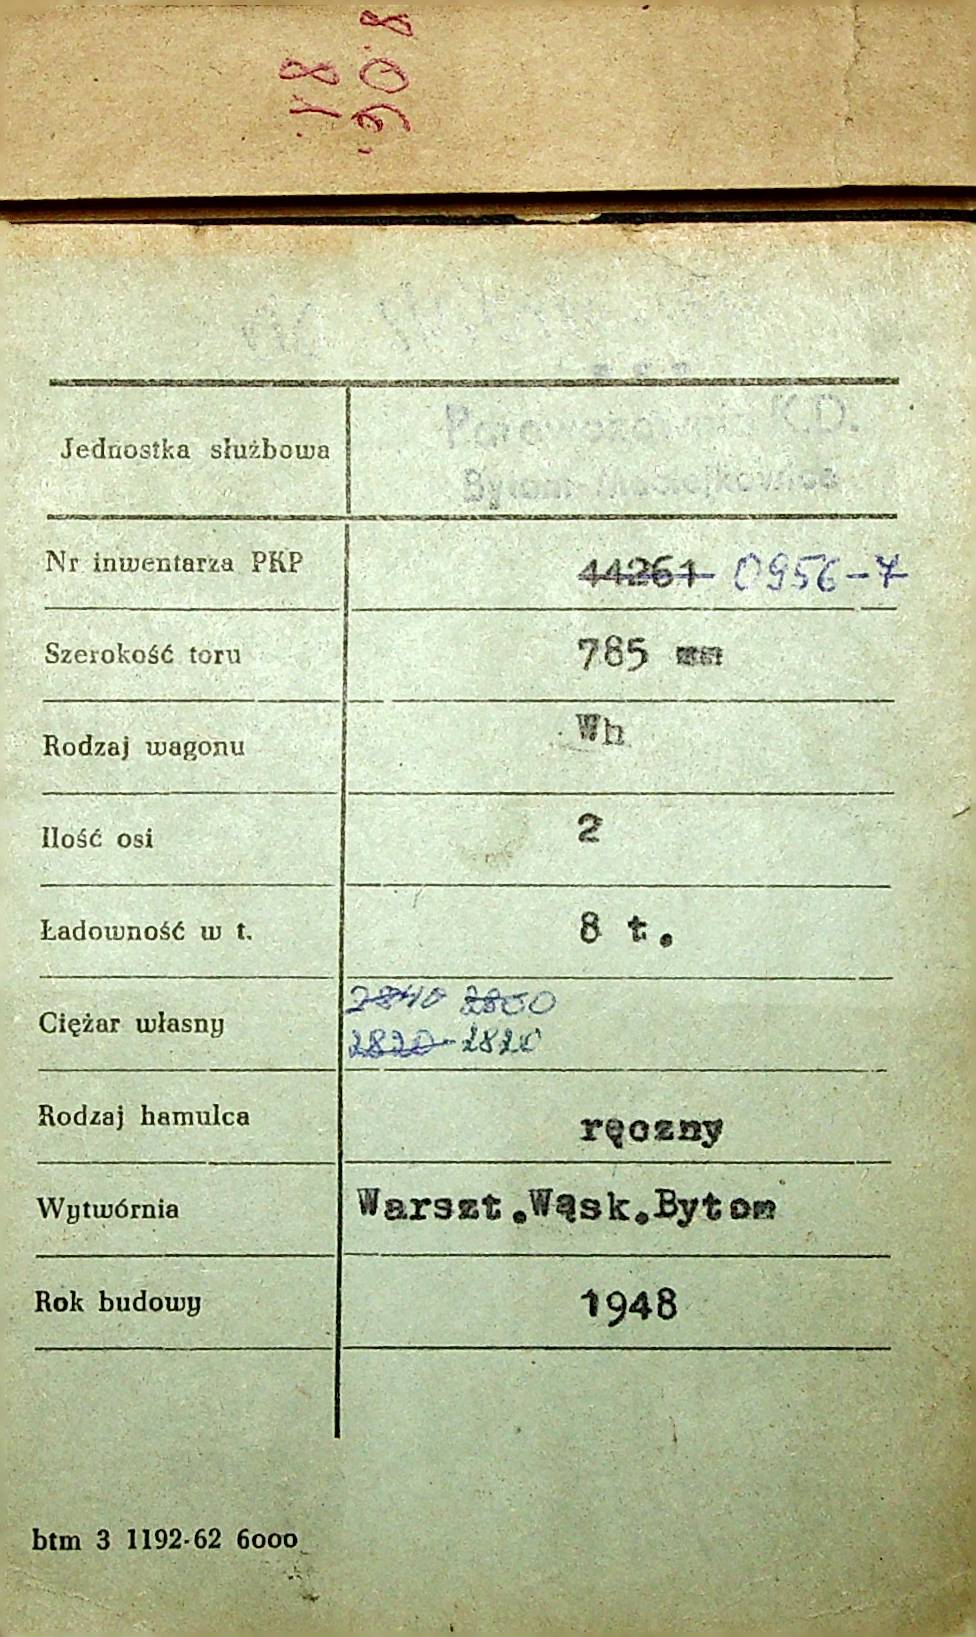 P.K.P.
Parowozownia K.D.
Jednostka służbowa
Bytom-Maciejkowice
Nr inwentarza PKP 44261 0956-7
Szerokość toru 785 mm
Rodzaj wagonu Wh
Ilość osi 2
Ładowność w t. 8 t.
2840 2800
Ciężar własny
2820 2820
Rodzaj hamulca ręczny
Wytwórnia Warszt.Wąsk.Bytom
Rok budowy 1948
btm 3 1192-62 6000